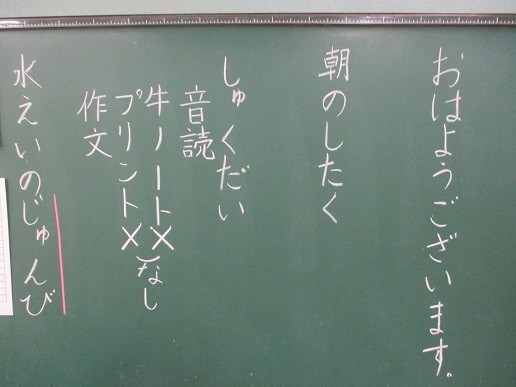 おはようございます。
朝のしたく
しゅくだい
音読
牛ノート×
プリント×
なし
作文
水えいのじゅんび